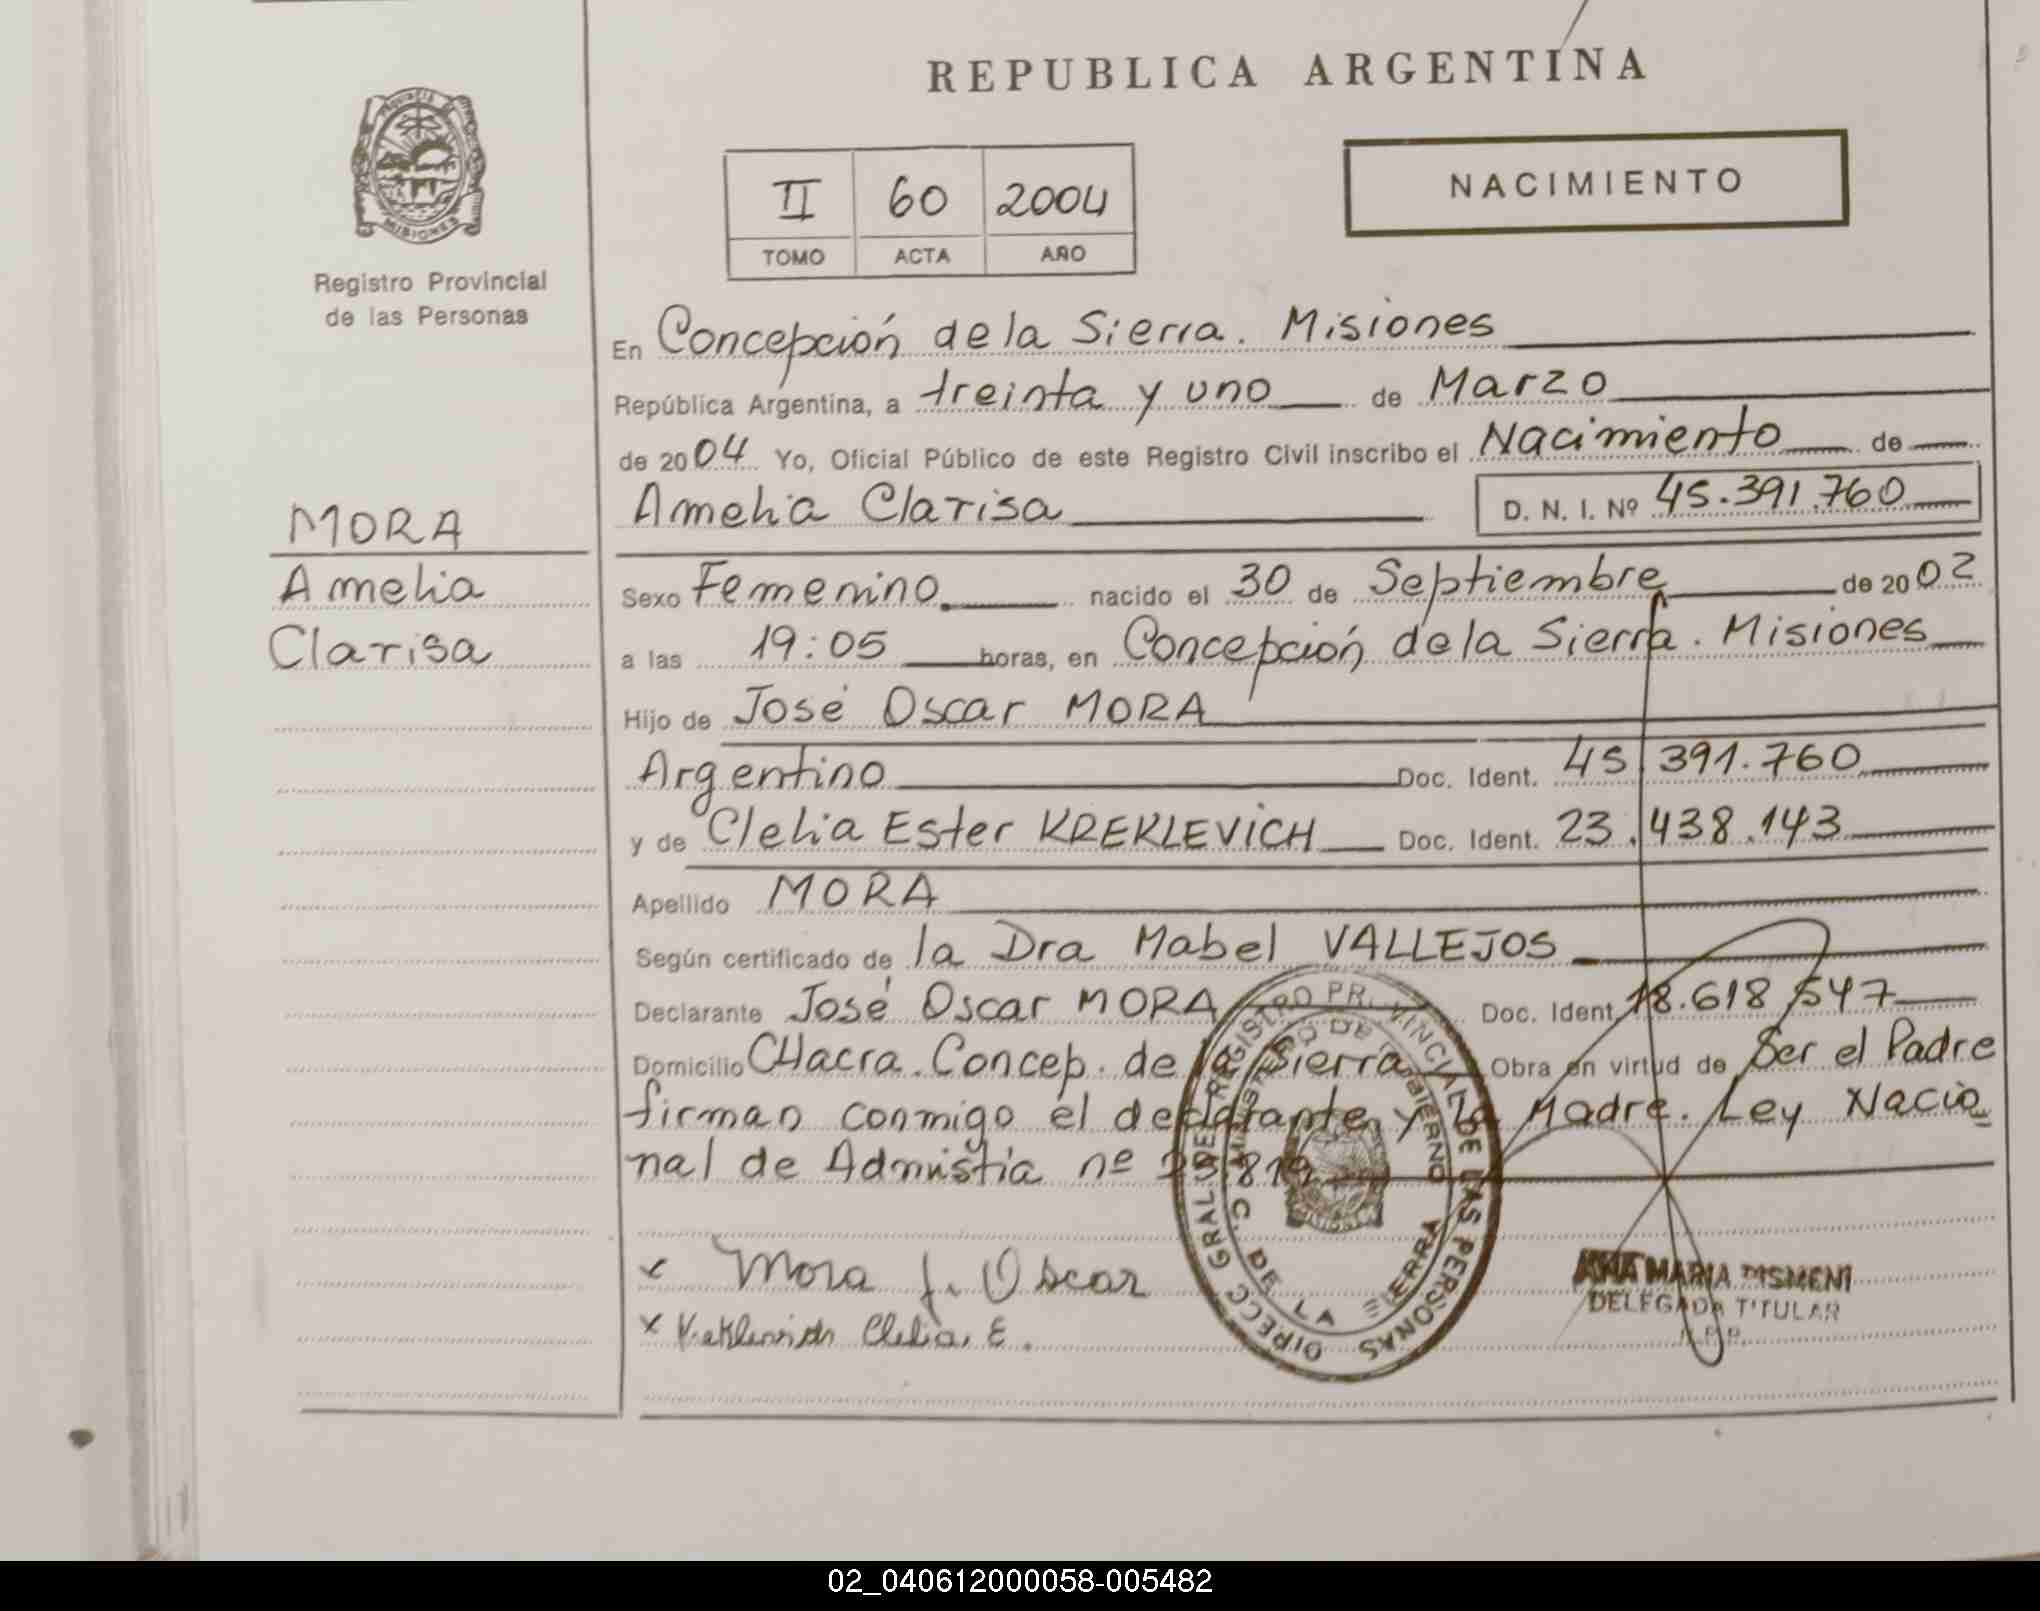 REPUBLICA ARGENTINA
PROVINCIA DE MISIONES
Registro Provincial
de las Personas
II 60 2004
TOMO ACTA AÑO
NACIMIENTO
En Concepción de la Sierra. Misiones
República Argentina, a treinta y uno de Marzo
de 2004 Yo, Oficial Público de este Registro Civil inscribo el Nacimiento de
Amelia Clarisa D. N. I. Nº 45.391.760
MORA
Amelia
Clarisa
Sexo Femenino. nacido el 30 de Septiembre de 2002
a las 19:05 horas, en Concepción de la Sierra. Misiones
Hijo de José Oscar MORA
Argentino Doc. Ident. 45.391.760
y de Clelia Ester KREKLEVICH Doc. Ident. 23.438.143
Apellido MORA
Según certificado de la Dra Mabel VALLEJOS
Declarante José Oscar MORA Doc. Ident. 18.618.547
Domicilio CHacra. Concep. de la Sierra Obra en virtud de Ser el Padre
firman conmigo el declarante y la Madre. Ley Nacio
nal de Admistia nº 25.819
x Mora J. Oscar
x Kreklevich Clelia, E.
DIRECC. GRAL. DE REGISTRO PROVINCIAL DE LAS PERSONAS
MINISTERIO DE GOBIERNO
C. DE LA SIERRA
ANA MARIA PISMENI
DELEGADA TITULAR
R.P.P.
02_040612000058-005482